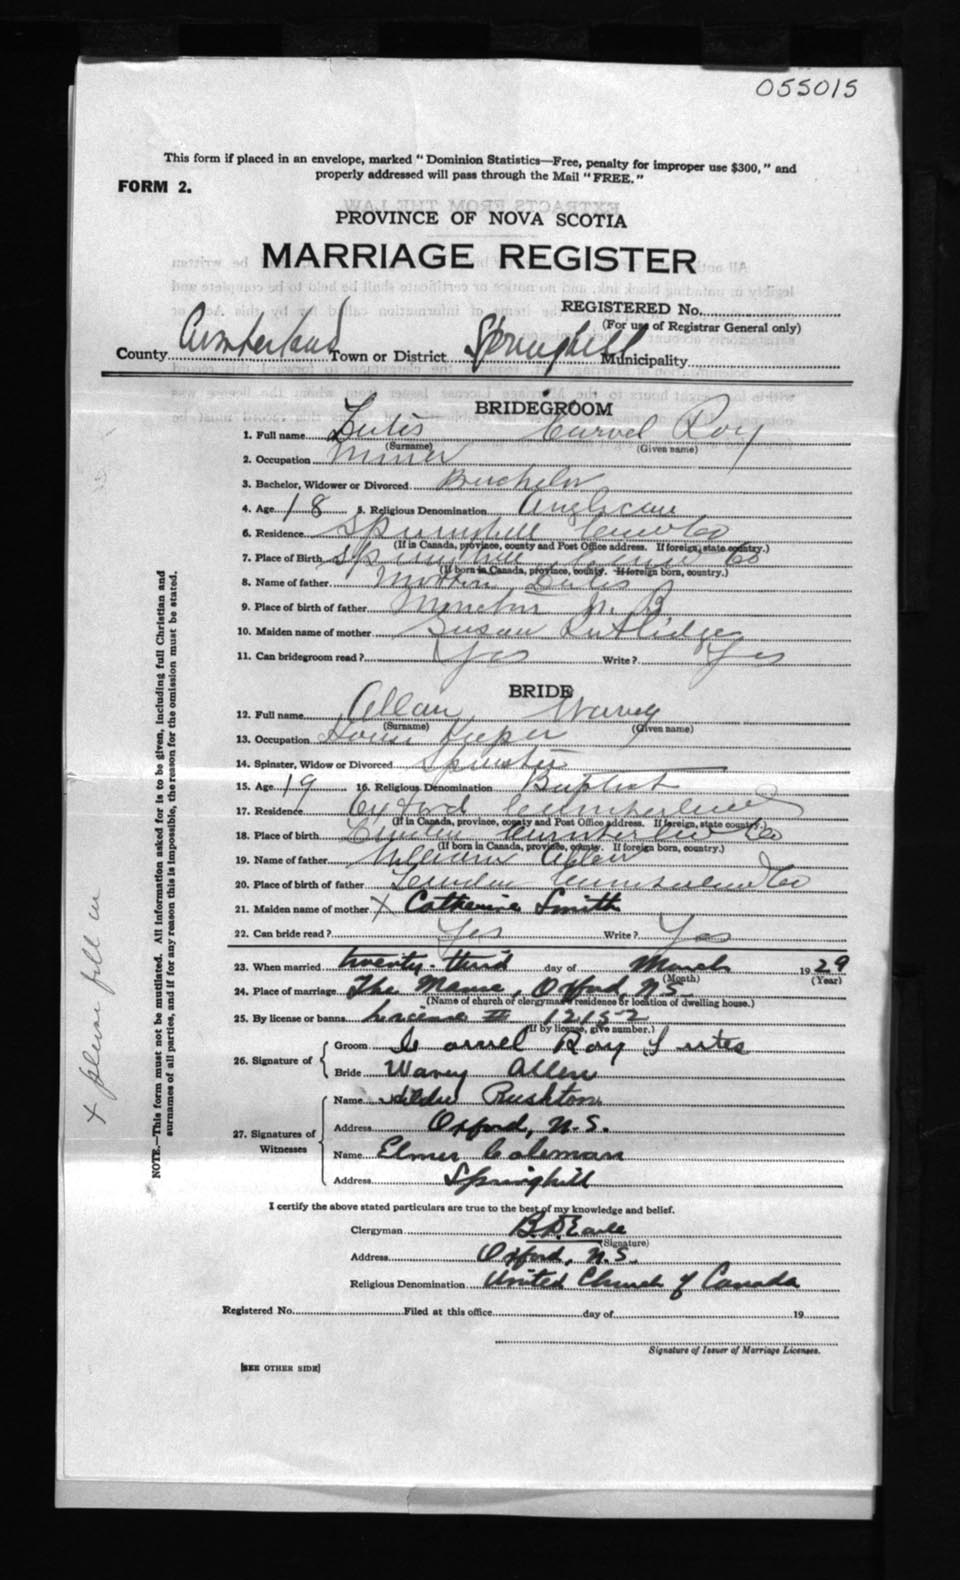 055015
This form if placed in an envelope, marked "Dominion Statistics—Free, penalty for improper use $300," and
properly addressed will pass through the Mail "FREE."
FORM 2.
PROVINCE OF NOVA SCOTIA
MARRIAGE REGISTER
REGISTERED No.
(For use of Registrar General only)
County Cumberland Town or District Springhill Municipality
BRIDEGROOM
1. Full name Lutes Carvel Roy
(Surname) (Given name)
2. Occupation Miner
3. Bachelor, Widower or Divorced Bachelor
4. Age 18 5. Religious Denomination Anglican
6. Residence Springhill Cumb Co
(If in Canada, province, county and Post Office address. If foreign, state country.)
7. Place of Birth Springhill Cumb Co
(If born in Canada, province, county. If foreign born, country.)
8. Name of father Lutes
9. Place of birth of father Moncton N. B
10. Maiden name of mother Susan Rutlidge
11. Can bridegroom read? Yes Write? Yes
BRIDE
12. Full name Allan Wavey
(Surname) (Given name)
13. Occupation House Keeper
14. Spinster, Widow or Divorced Spinster
15. Age 19 16. Religious Denomination Baptist
17. Residence Oxford Cumberland
(If in Canada, province, county and Post Office address. If foreign, state country.)
18. Place of birth Linden Cumberland Co
(If born in Canada, province, county. If foreign born, country.)
19. Name of father William Allen
20. Place of birth of father Linden Cumberland Co
21. Maiden name of mother X Catherine Smith
22. Can bride read? Yes Write? Yes
23. When married twenty-third day of March 1929
(Month) (Year)
24. Place of marriage The Manse, Oxford, N.S.
(Name of church or clergyman's residence or location of dwelling house.)
25. By license or banns License # 12152
(If by license, give number.)
26. Signature of
Groom Carvel Roy Lutes
Bride Wavey Allen
27. Signatures of Witnesses
Name Rushton
Address Oxford, N.S.
Name Elmer Coleman
Address Springhill
I certify the above stated particulars are true to the best of my knowledge and belief.
Clergyman B.D. Earle
(Signature)
Address Oxford, N.S.
Religious Denomination United Church of Canada
Registered No. Filed at this office day of 19
Signature of Issuer of Marriage Licenses.
[SEE OTHER SIDE]
NOTE.—This form must not be mutilated. All information asked for is to be given, including full Christian and
surnames of all parties, and if for any reason this is impossible, the reason for the omission must be stated.
X please fill in